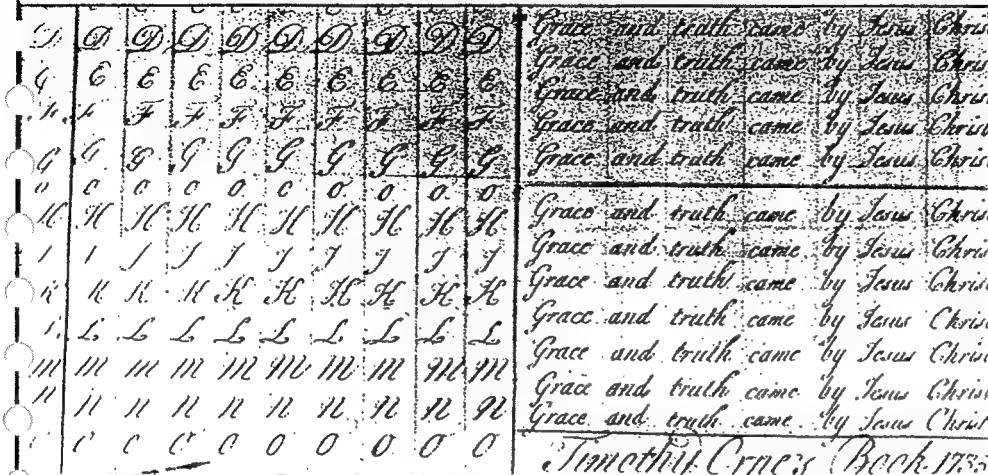 D D D D D D D D D D
E E E E E E E E E
F F F F F F F F F
G G G G G G G G G G
O O O O O O O O O O
H H H H H H H H H H
I I I I I I I I I I
K K K K K K K K K K
L L L L L L L L L
M M M M M M M M M M
N N N N N N N N N N
O O O O O O O O O
Grace and truth came by Jesus Christ
Grace and truth came by Jesus Christ
Grace and truth came by Jesus Christ
Grace and truth came by Jesus Christ
Grace and truth came by Jesus Christ
Grace and truth came by Jesus Christ
Grace and truth came by Jesus Christ
Grace and truth came by Jesus Christ
Grace and truth came by Jesus Christ
Grace and truth came by Jesus Christ
Grace and truth came by Jesus Christ
Grace and truth came by Jesus Christ
Timothy Orne's Book 1735